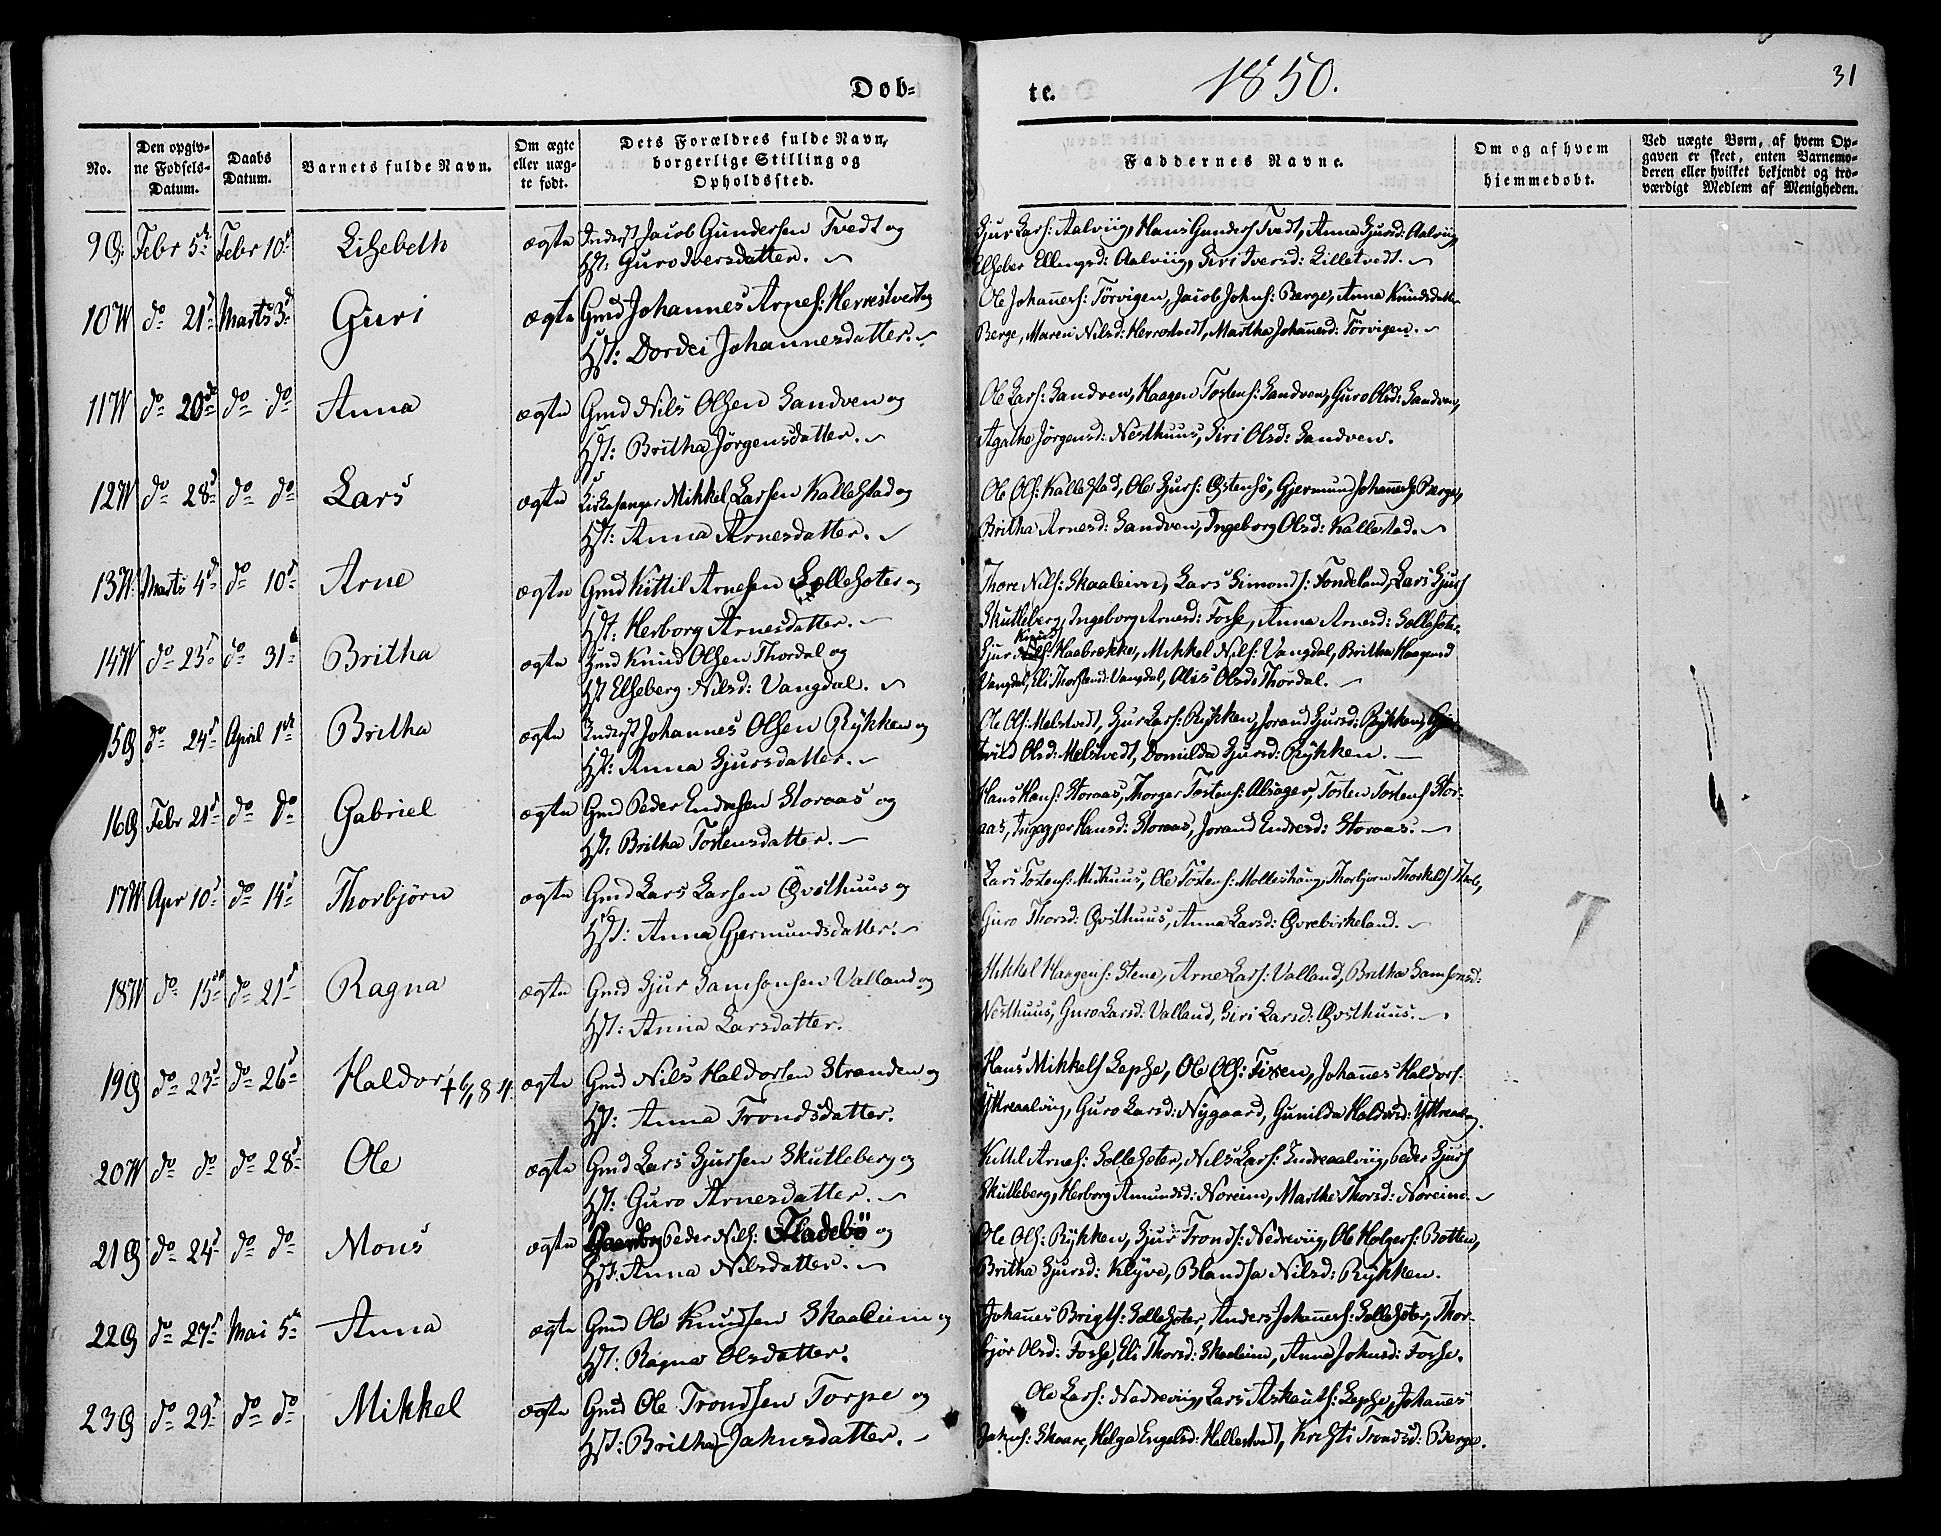 Døb-
te.
1850.
31
No.
Den opgiv-
ne Fødsels-
Datum.
Daabs
Datum.
Barnets fulde Navn.
Om ægte
eller uæg-
te født.
Dets Forældres fulde Navn,
borgerlige Stilling og
Opholdssted.
Faddernes Navne.
Om og af hvem
hjemmedøbt.
Ved uægte Børn, af hvem Op-
gaven er skeet, enten Barnemo-
deren eller hvilket bekjendt og tro-
værdigt Medlem af Menigheden.
9 Febr 5 Febr 10 Lisebeth ægte Inderst Jacob Gundersen Tvedt og
Hst: Guro Iversdatter.
Sjur Lars: Aalviig, Hans Gunders Tvedt, Anna Sjursd: Aalviig
Elseber Ellingsd: Aalviig, Siri Iversd: Lilletvedt.
10 W do 21 Marts 3 Guri ægte Gmd Johannes Arnes: Herrestvedt og
Hst: Dordei Johannesdatter.
Ole Johannes: Törvigen, Jacob Johns: Berge, Anna Knudsdatter
Berge, Maren Nilsd: Herrestvedt, Martha Johannesd: Törvigen.
11 W do 20 do do Anna ægte Gmd Nils Olsen Sandven og
Hst: Britha Jörgensdatter.
Ole Lars: Sandven, Haagen Tostens: Sandven, Guro Olsd: Sandven,
Agathe Jörgensd: Nesthuus, Siri Olsd: Sandven.
12 W do 28 do do Lars ægte Kirkesanger Mikkel Larsen Kallestad og
Hst: Anna Arnesdatter.
Ole Ols: Kallestad, Ole Sjurs: Östensö, Gjermund Johannes: Berge,
Britha Arnesd: Sandven, Ingeborg Olsd: Kallestad.
13 W Marts 4 do 10 Arne ægte Gmd Kittil Arnesen Sollesæter og
Hst: Herborg Arnesdatter.
Thore Nils: Skaaleim, Lars Simonds: Tondeland, Lars Sjurs
Skutleberg, Ingeborg Arnesd: Fosse, Anna Arnesd:
14 W do 23 do 31 Britha ægte Gmd Knud Olsen Thordal og
Hst Elseberg Nilsd: Vangdal.
Knud
Sjur Haabrekke, Mikkel Nils: Vangdal, Britha Haagensd
Vangdal, Eli Vangdal, Olsd: Thordal.
15 do 24 April 1 Britha ægte Inderst Johannes Olsen Rykken og
Hst: Anna Sjursdatter.
Ole Ols: Melstvedt, Sjur Lars: Rykken, Jorand Sjursd: Rykken,
Olsd: Melstvedt, Domilda Sjursd: Rykken.
16 Febr 21 do do Gabriel ægte Gmd Peder Endresen Storaas og
Hst: Britha Tostensdatter.
Hans Hans: Storaas, Thorger Tostens: Alsager, Tosten Tostens Stor-
aas, Ingegjer Hansd: Storaas, Jorand Endresd: Storaas.
17 W Apr 10 do 14 Thorbjörn ægte Gmd Lars Larsen Övsthuus og
Hst: Anna Gjermundsdatter.
Lars Tostens: Mithuus, Ole Tostens: Molleshaug, Thorbjörn Thorkels
Guro Thorsd: Övsthuus, Anna Larsd: Övrebirkeland.
18 W do 15 do 21 Ragna ægte Gmd Sjur Samsonsen Valland og
Hst: Anna Larsdatter.
Mikkel Haagens: Stene, Arne Lars: Valland, Britha Samsonsd:
Nesthuus, Guro Larsd: Valland, Siri Larsd: Övsthuus.
19 do 23 do 26 Haldor + 6/8 4. ægte Gmd Nils Haldorsen Stranden og
Hst: Anna Trondsdatter.
Hans Mikkels Lepse, Ole Ols: Tixen, Johannes Haldors:
Ytreaalviig, Guro Larsd: Nygaard, Gunilda Haldorsd: Ytreaalv.
20 W do do do 28 Ole ægte Gmd Lars Sjursen Skutleberg og
Hst: Guro Arnesdatter.
Kittil Arnes: Sollesæter, Nils Lars: Indreaalviig, Peder Sjurs
Skutleberg, Herborg Amundsd: Noreim, Marthe Thorsd: Noreim.
21 do 24 do do Mons ægte Peder Nils: Fladebö og
Hst: Anna Nilsdatter.
Ole Ols: Rykken, Sjur Tronds: Nedreviig, Ole Holgers: Botten,
Britha Sjursd: Klyve, Blandsa Nilsd: Rykken.
22 do 27 Mai 5 Anna ægte Gmd Ole Knudsen Skaaleim og
Hst: Ragna Olsdatter.
Johannes Brigts: Sollesæter, Anders Johannes: Sollesæter, Thor-
björ Olsd: Fosse, Eli Thorsd: Skaaleim, Anna Johnsd: Fosse.
23 do 29 do do Mikkel ægte Gmd Ole Trondsen Torpe og
Hst: Britha Jahnsdatter.
Ole Lars: Nedreviig, Lars Askouts: Lepse, Johannes
Jahns: Skaare, Helga Engelsd: Hellestvedt, Kristi Trondsd: Berge.